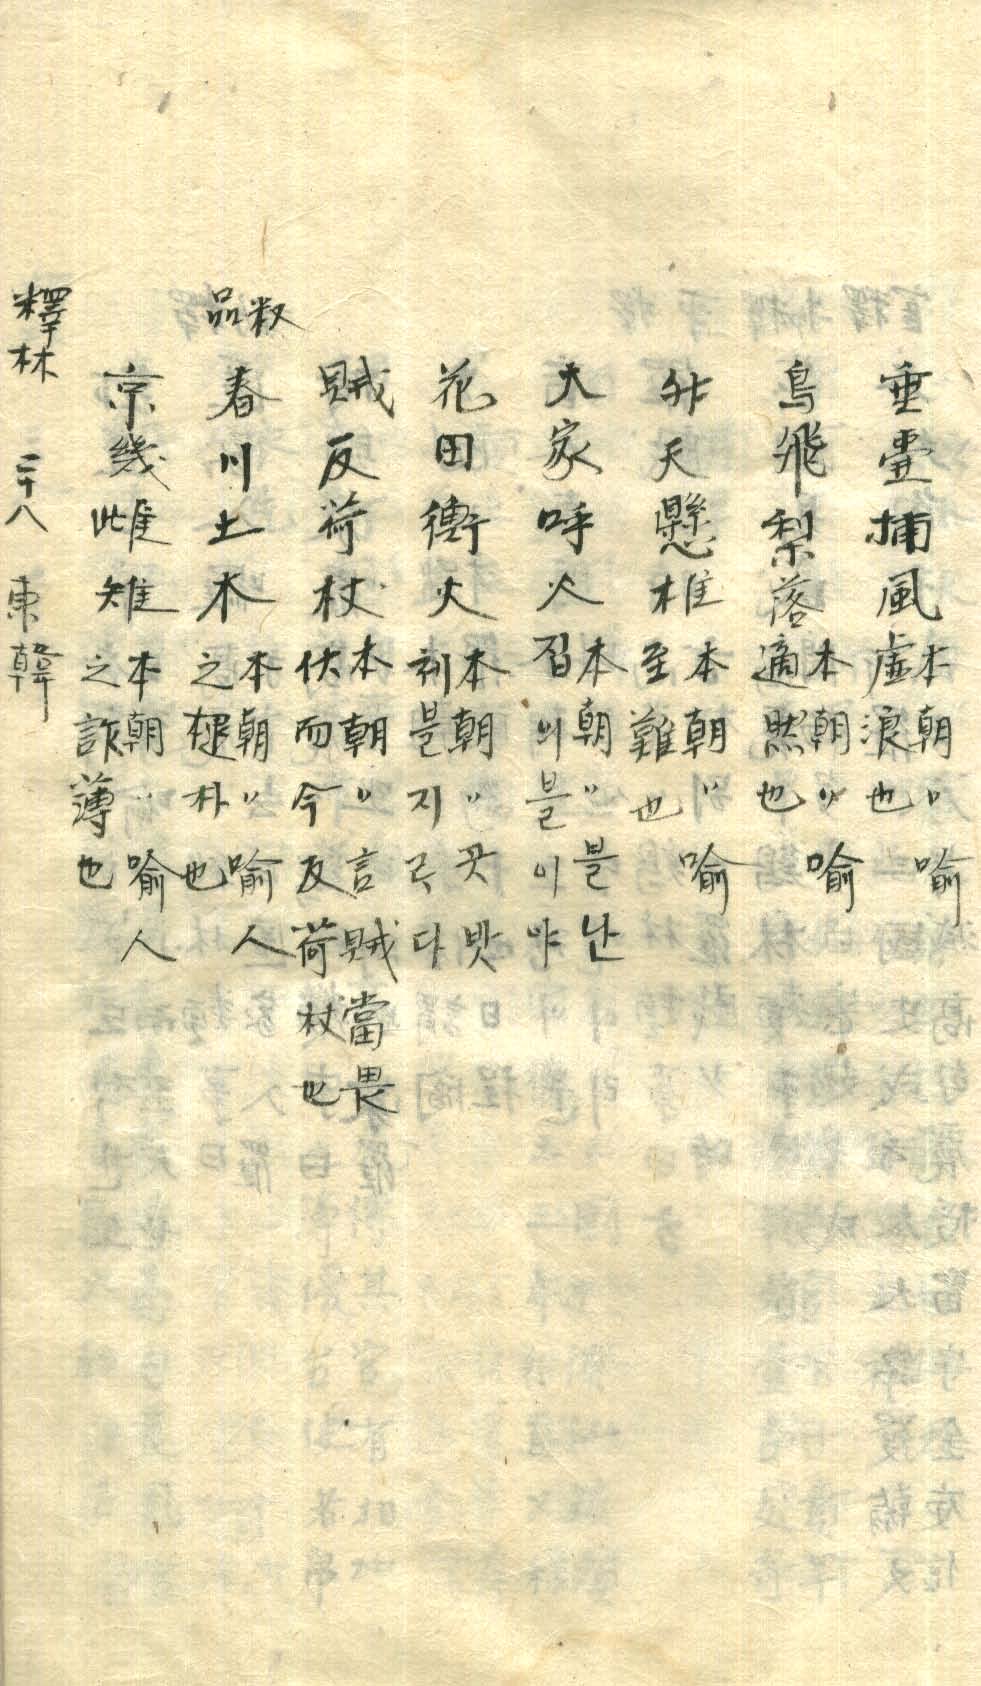 乗雲捕風 本朝〃 喻
虛浪也
烏飛梨落 本朝〃 喻
適然也
舛天懸椎 本朝〃 喻
至難也
大家呼火 本朝〃 블난
집의블이야
花田衝火 本朝〃 곳밧
블지르다
賊反荷杖 本朝〃 言賊當畏
伏而今反荷杖也
品數
春川土木 本朝〃 喻人
之 朴也
京畿雌雉 本朝〃 喻人
之詐薄也
釋林 二十八 東韓